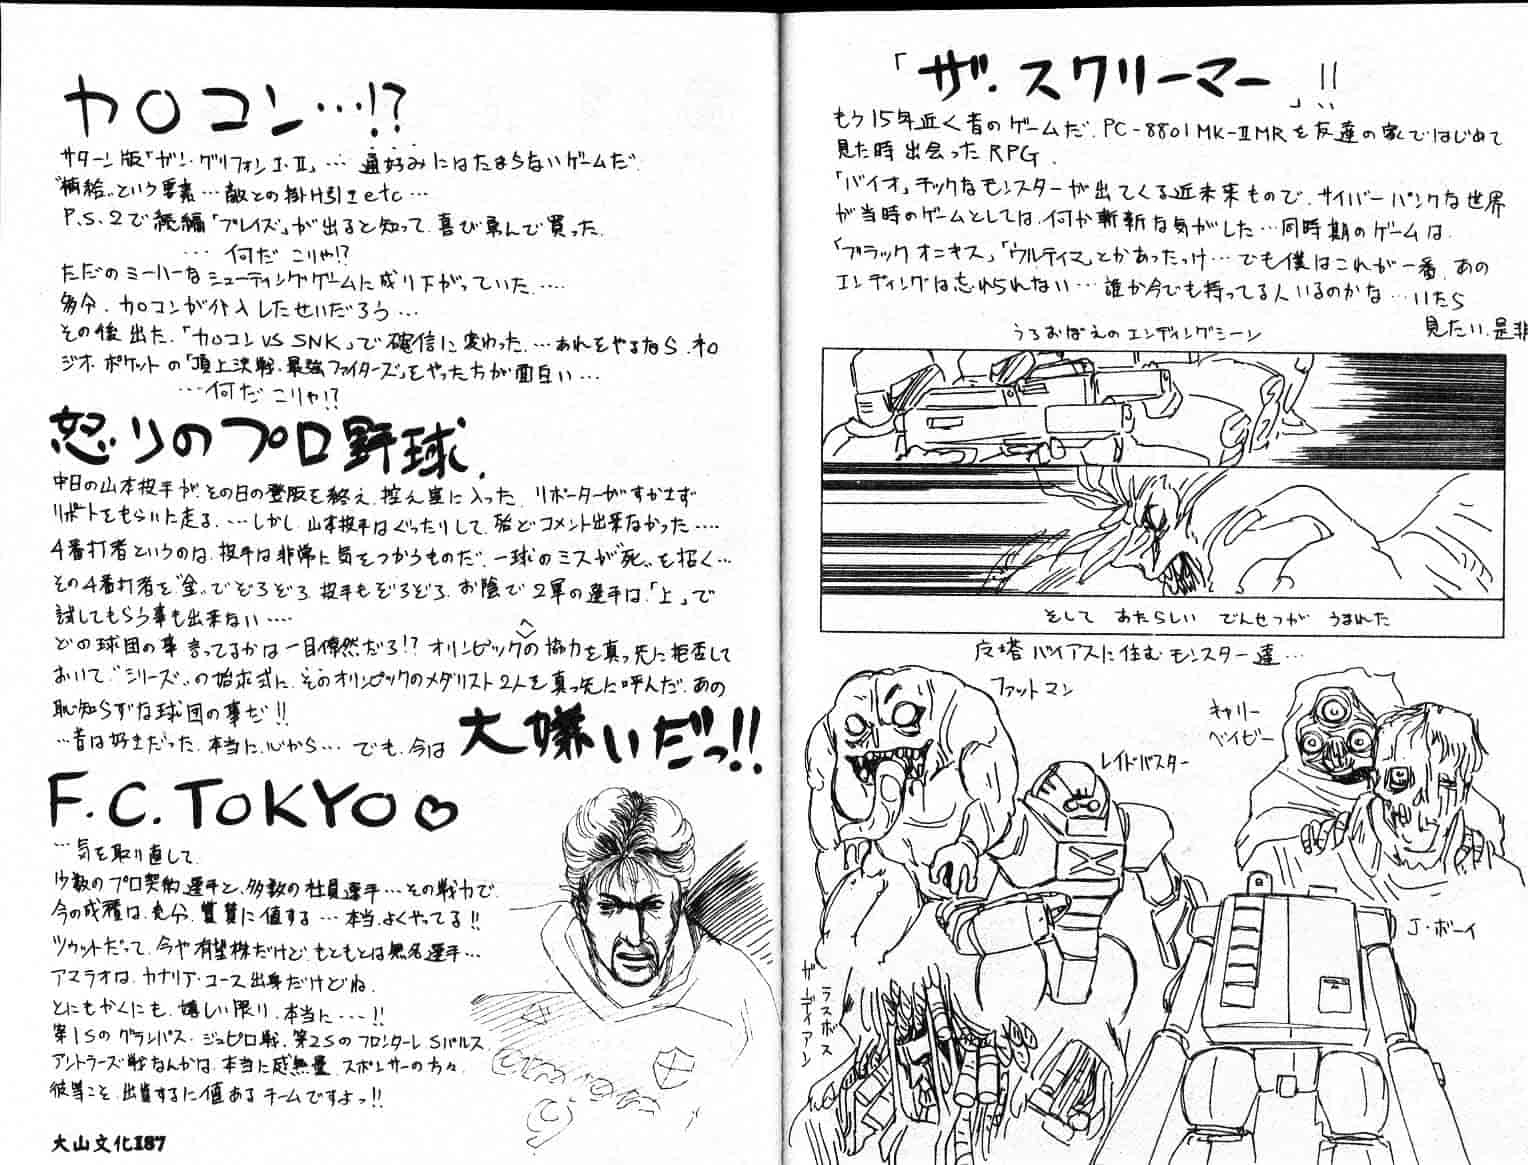 カ○コン…!?
サターン版「ガン・グリフォンⅠ・Ⅱ」…通好みにはたまらないゲームだ.
"補給"という要素…敵との掛け引きetc…
P.S.2で続編「ブレイズ」が出ると知って、喜び勇んで買った.
…何だ こりゃ!?
ただのミーハーなシューティングゲームに成り下がっていた.…
多分、カ○コンが介入したせいだろう…
その後出た、「カ○コン VS SNK」で確信に変わった.…あれをやるなら、ネ○
ジオ・ポケットの「頂上決戦・最強ファイターズ」をやった方が面白い…
…何だ こりゃ!?
怒りのプロ野球.
中日の山本投手が、その日の登板を終え、控え室に入った. リポーターがすかさず
リポートをもらいに走る.…しかし、山本投手はぐったりして、殆どコメント出来なかった…
4番打者というのは、投手は非常に気をつかうものだ. 一球のミスが"死"を招く…
その4番打者を"金"でぞろぞろ、投手もぞろぞろ. お陰で2軍の選手は、「上」で
試してもらう事も出来ない…
どの球団の事言ってるかは一目瞭然だろ!? オリンピックへの協力を真っ先に拒否して
おいて、"シリーズ"の始球式に、そのオリンピックのメダリスト2人を真っ先に呼んだ、あの
恥知らずな球団の事だ!!
…昔は好きだった. 本当に、心から… でも、今は 大嫌いだっ!!
F.C.TOKYO♡
…気を取り直して.
少数のプロ契約選手と、多数の社員選手…その戦力で、
今の成績は、充分、賞賛に値する…本当、よくやってる!!
ツゥットだって、今や有望株だけど、もともとは無名選手…
アマラオは、カナリア・コース出身だけどね.
とにもかくにも、嬉しい限り、本当に…!!
第1Sのグランパス・ジュビロ戦、第2Sのフロンターレ、Sパルス、
アントラーズ戦なんかは、本当に感無量. スポンサーの方々、
彼等こそ、出資するに値あるチームですよっ!!
大山文化187
「ザ・スクリーマー」!!
もう15年近く昔のゲームだ. PC-8801MK-ⅡMRを友達の家ではじめて
見た時出会ったRPG.
「バイオ」チックなモンスターが出てくる近未来もので、サイバーパンクな世界
が当時のゲームとしては、何か斬新な気がした…同時期のゲームは、
「ブラックオニキス」「ウルティマ」とかあったっけ…でも僕はこれが一番、あの
エンディングは忘れられない…誰か今でも持ってる人いるのかな…いたら
見たい、是非
うろおぼえのエンディングシーン
そして あたらしい でんせつが うまれた
反塔バイアスに住むモンスター達…
ファットマン
キャリー
ベイビー
レイドバスター
J・ボーイ
ラスボス
ガーディアン